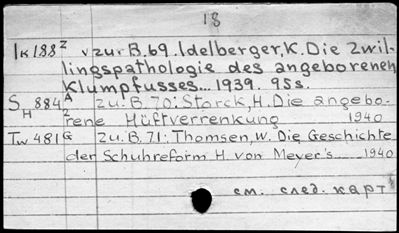 18
Iк188 Z v zur B. 69. Idelberger, K. Die Zwil-
lingspathologie des angeborenen
Klumpfusses... 1939. 95 s.
S H 884 A Z zu: B. 70: Storck, H. Die angebo-
rene Hüftverrenkung 1940
Tw 481 G zu. B. 71: Thomsen, W. Die Geschichte
der Schuhreform H. von Meyer's 1940
см. след. карт